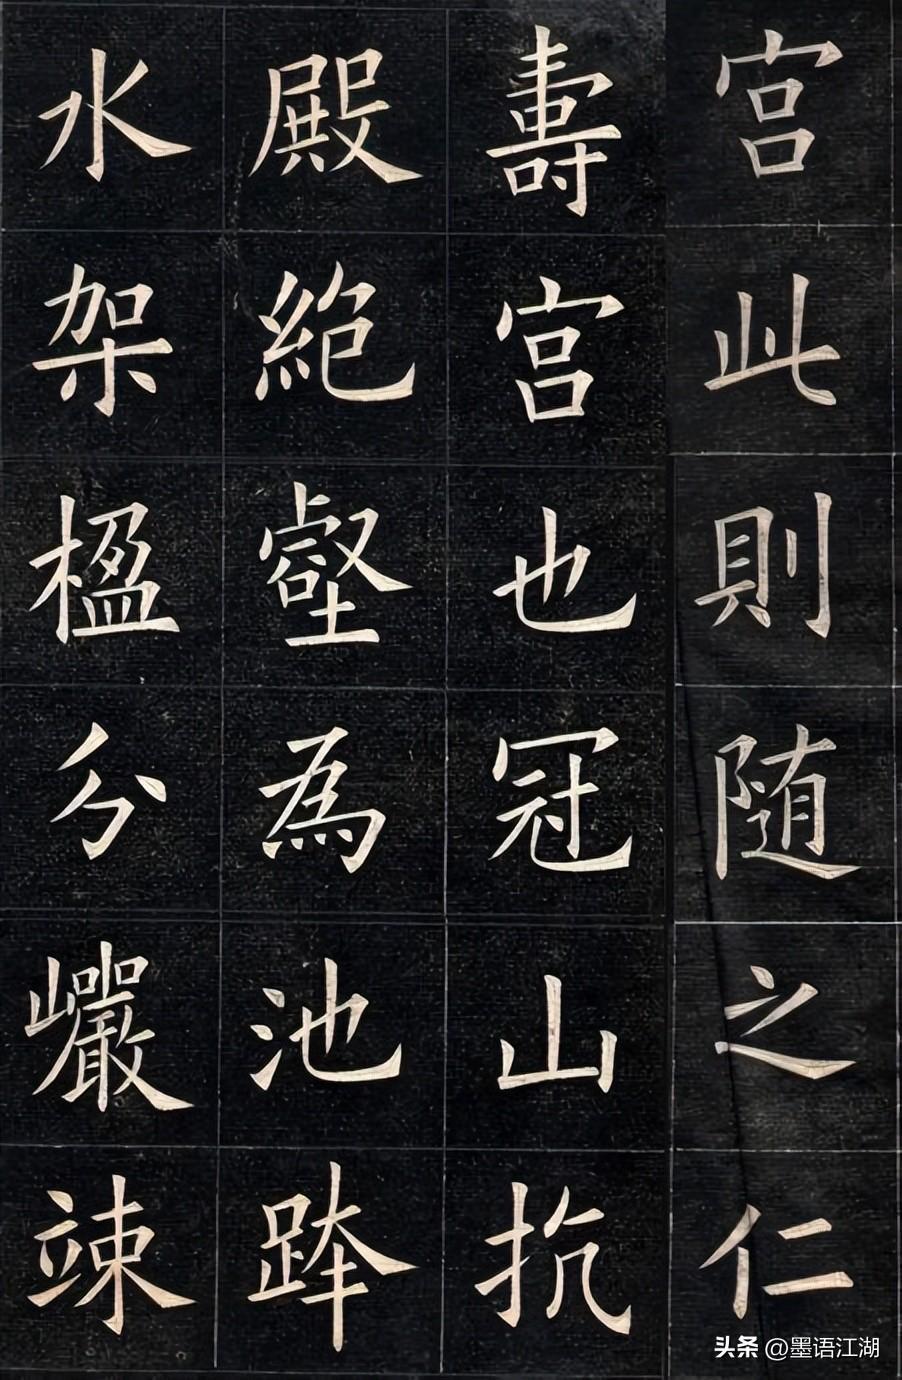 宫此則随之仁
壽宫也冠山抗
殿絶壑為池跨
水架楹分巖竦
头条 @墨语江湖